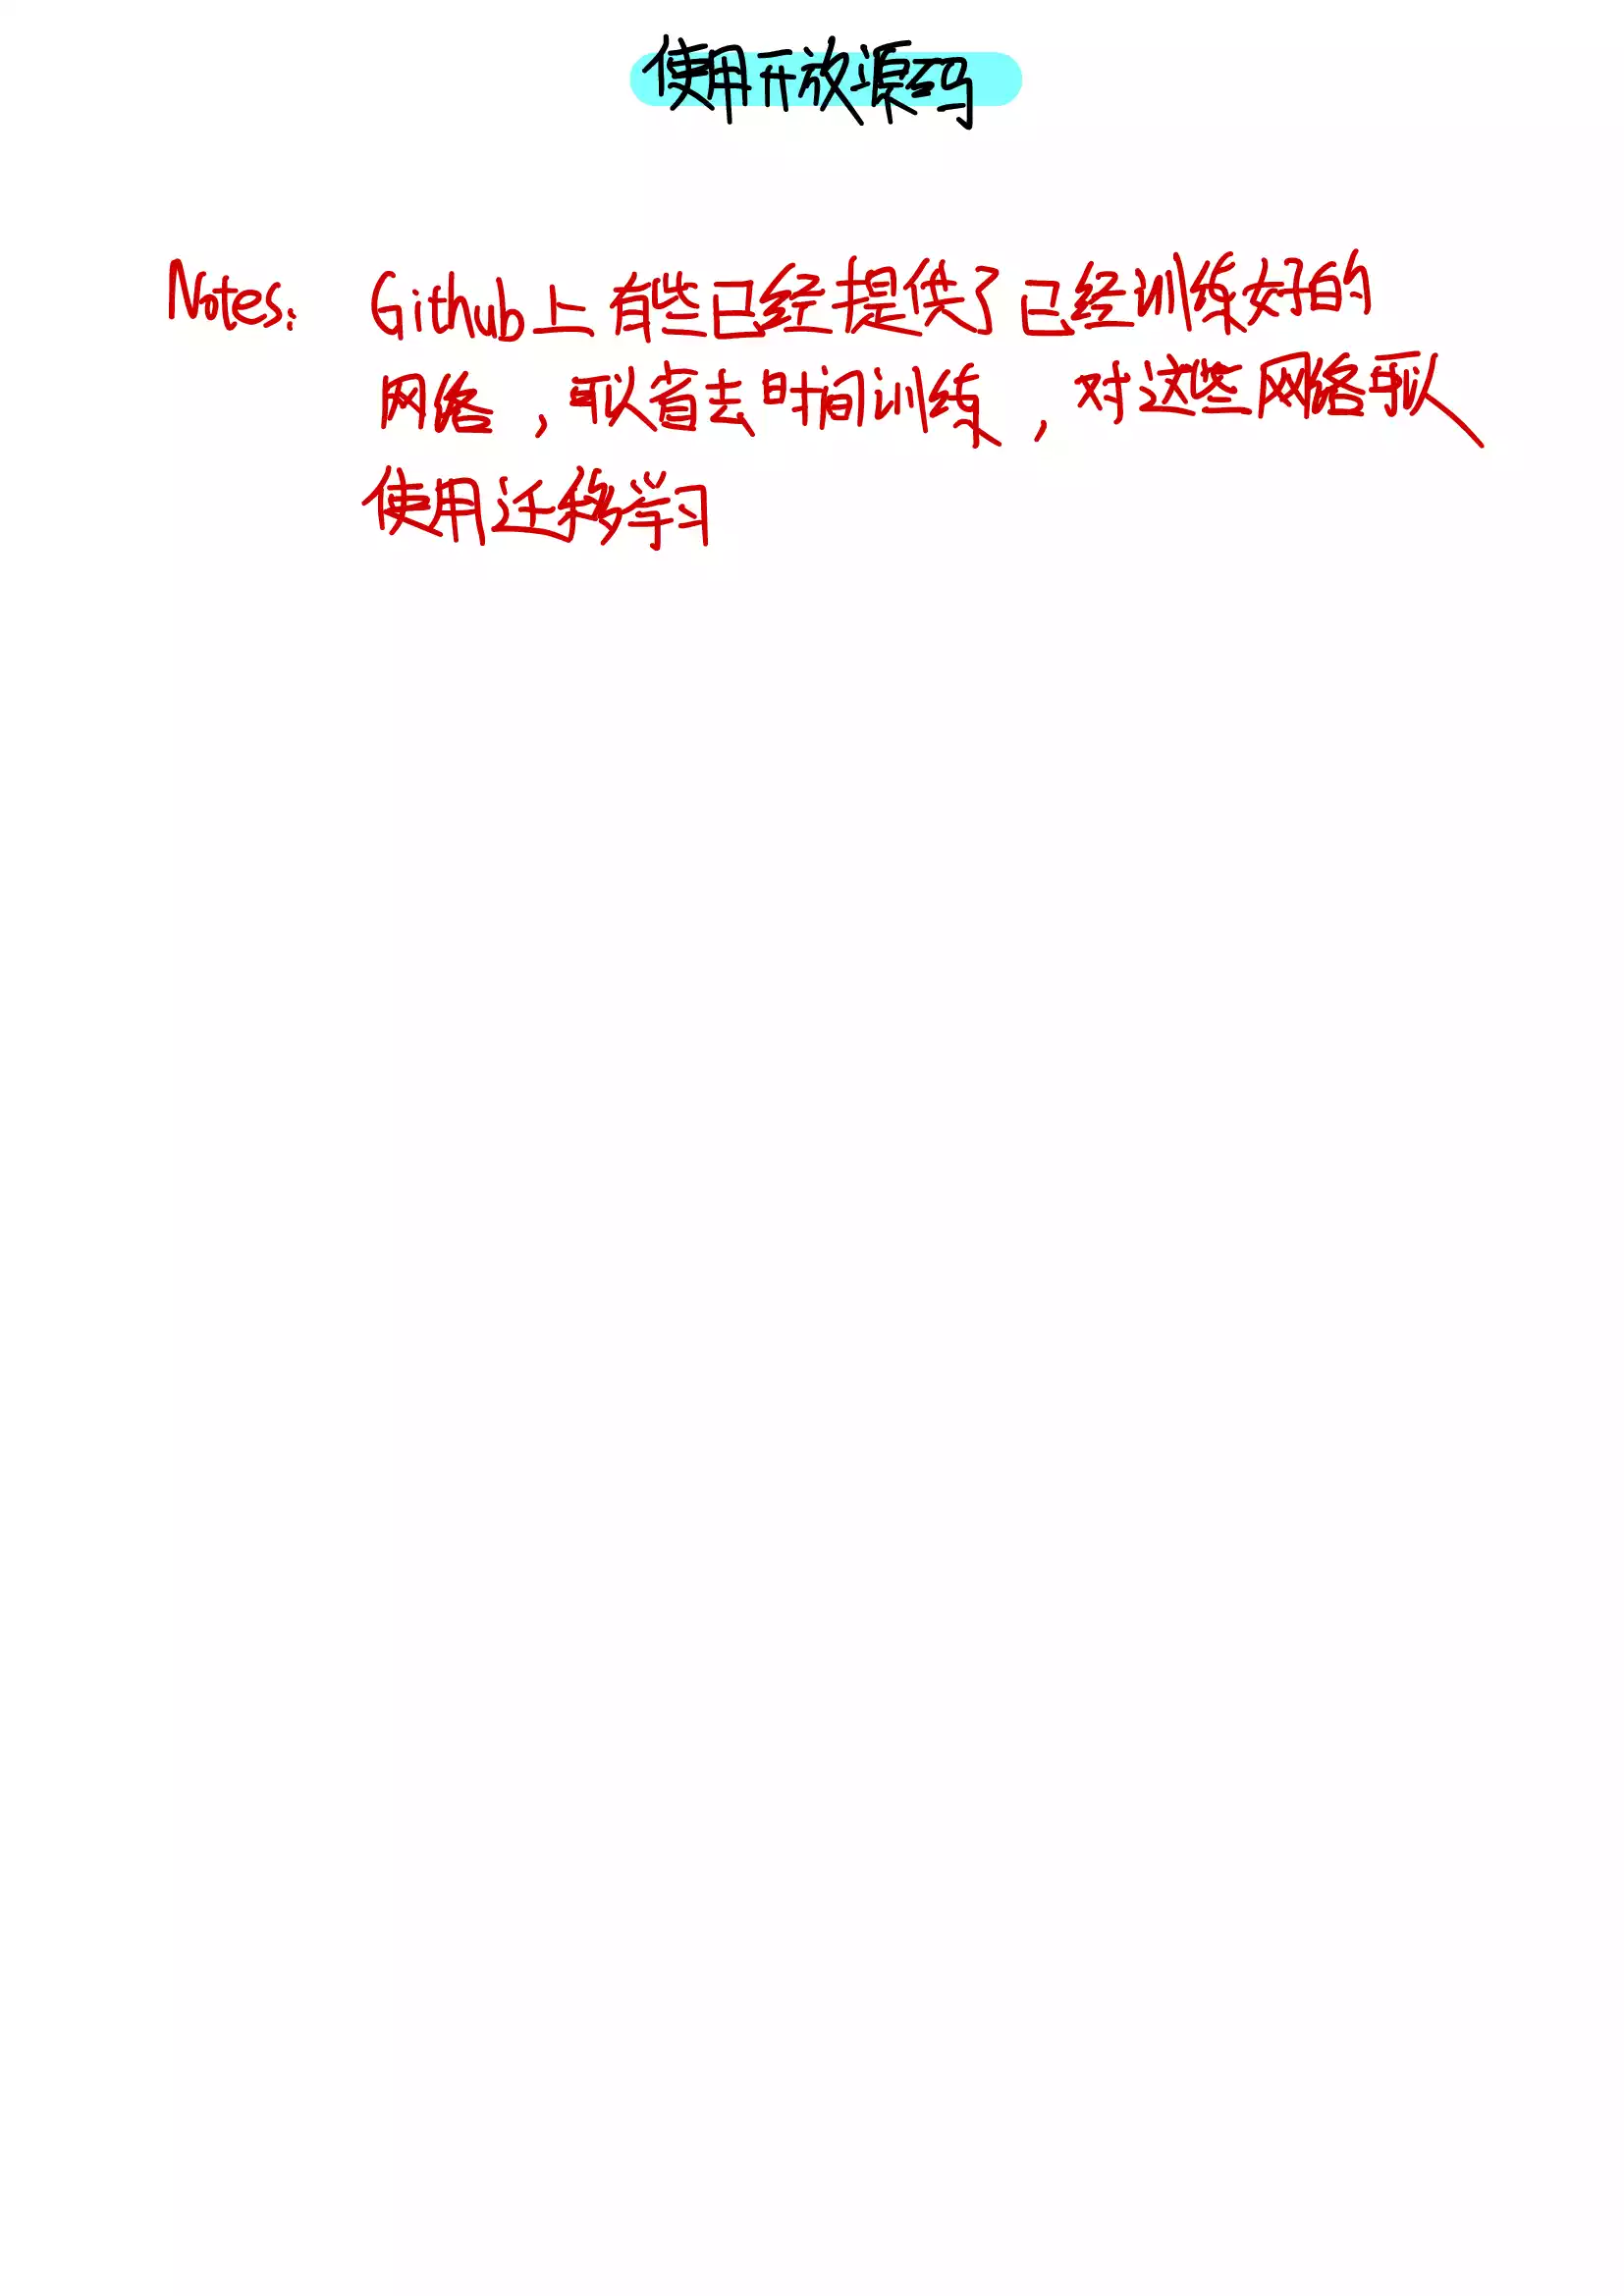 使用开放源码
Notes: Github上有些已经提供了已经训练好的
网络，可以省去时间训练，对这些网络可以
使用迁移学习